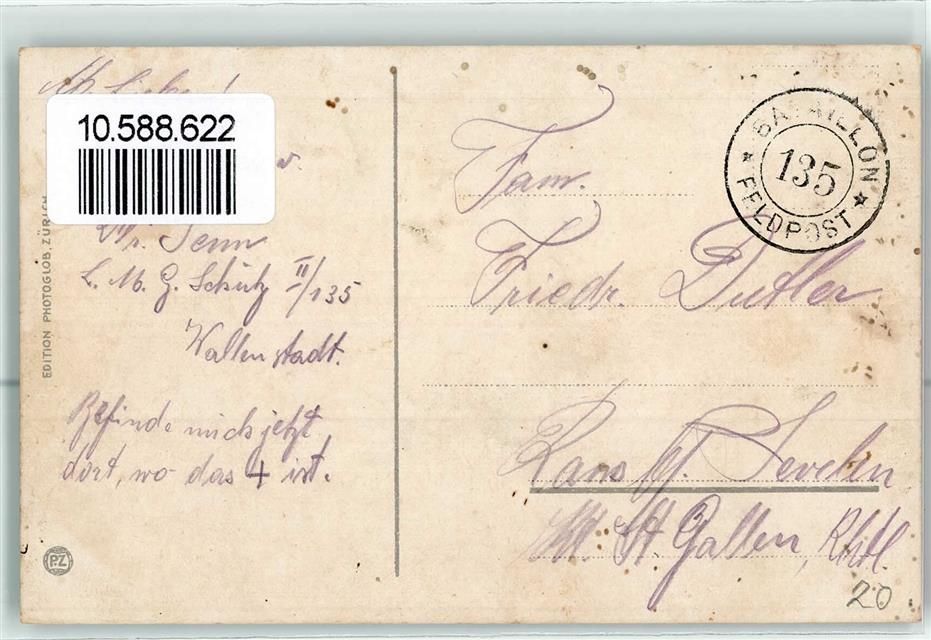 10.588.622
Senn
L. M. G. Schütz II/135
Wallenstadt.
Befinde mich jetzt,
dort, wo das + ist.
EDITION PHOTOGLOB, ZÜRICH
PZ
BATAILLON
135
FELDPOST
Fam.
Friedr. Dutler
Rans b/ Sevelen
Kt. St. Gallen, Rhtl.
20